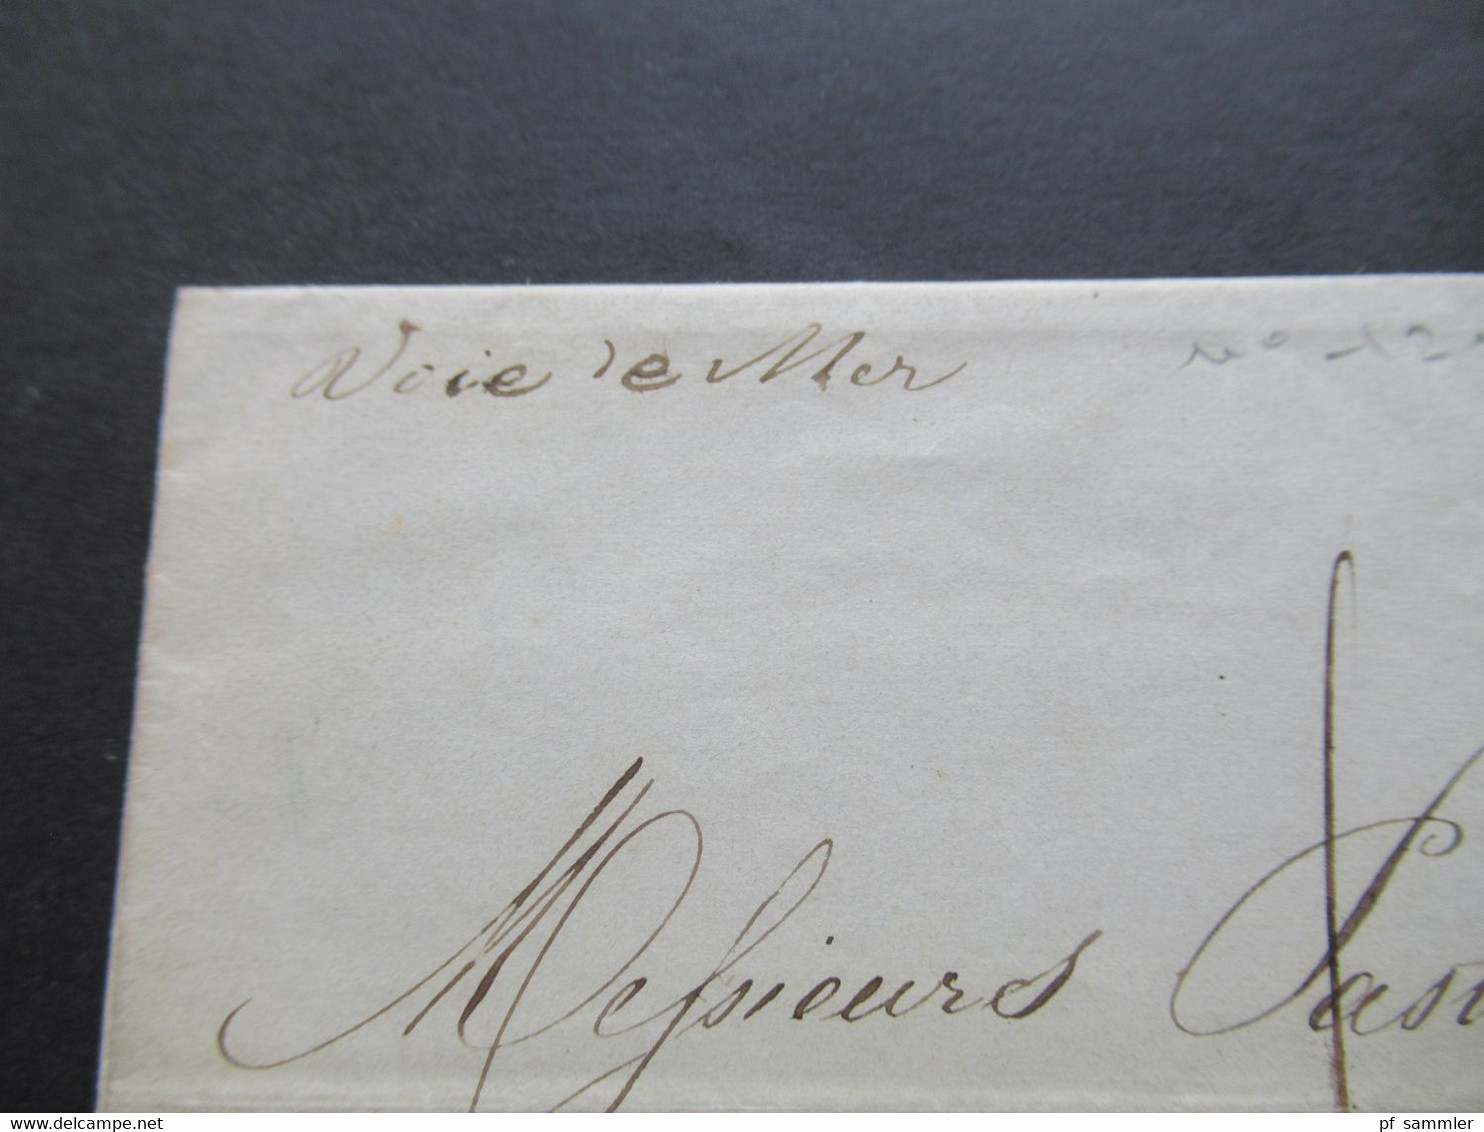 Voie de Mer
Messieurs
delcampe.net
pf_sammler